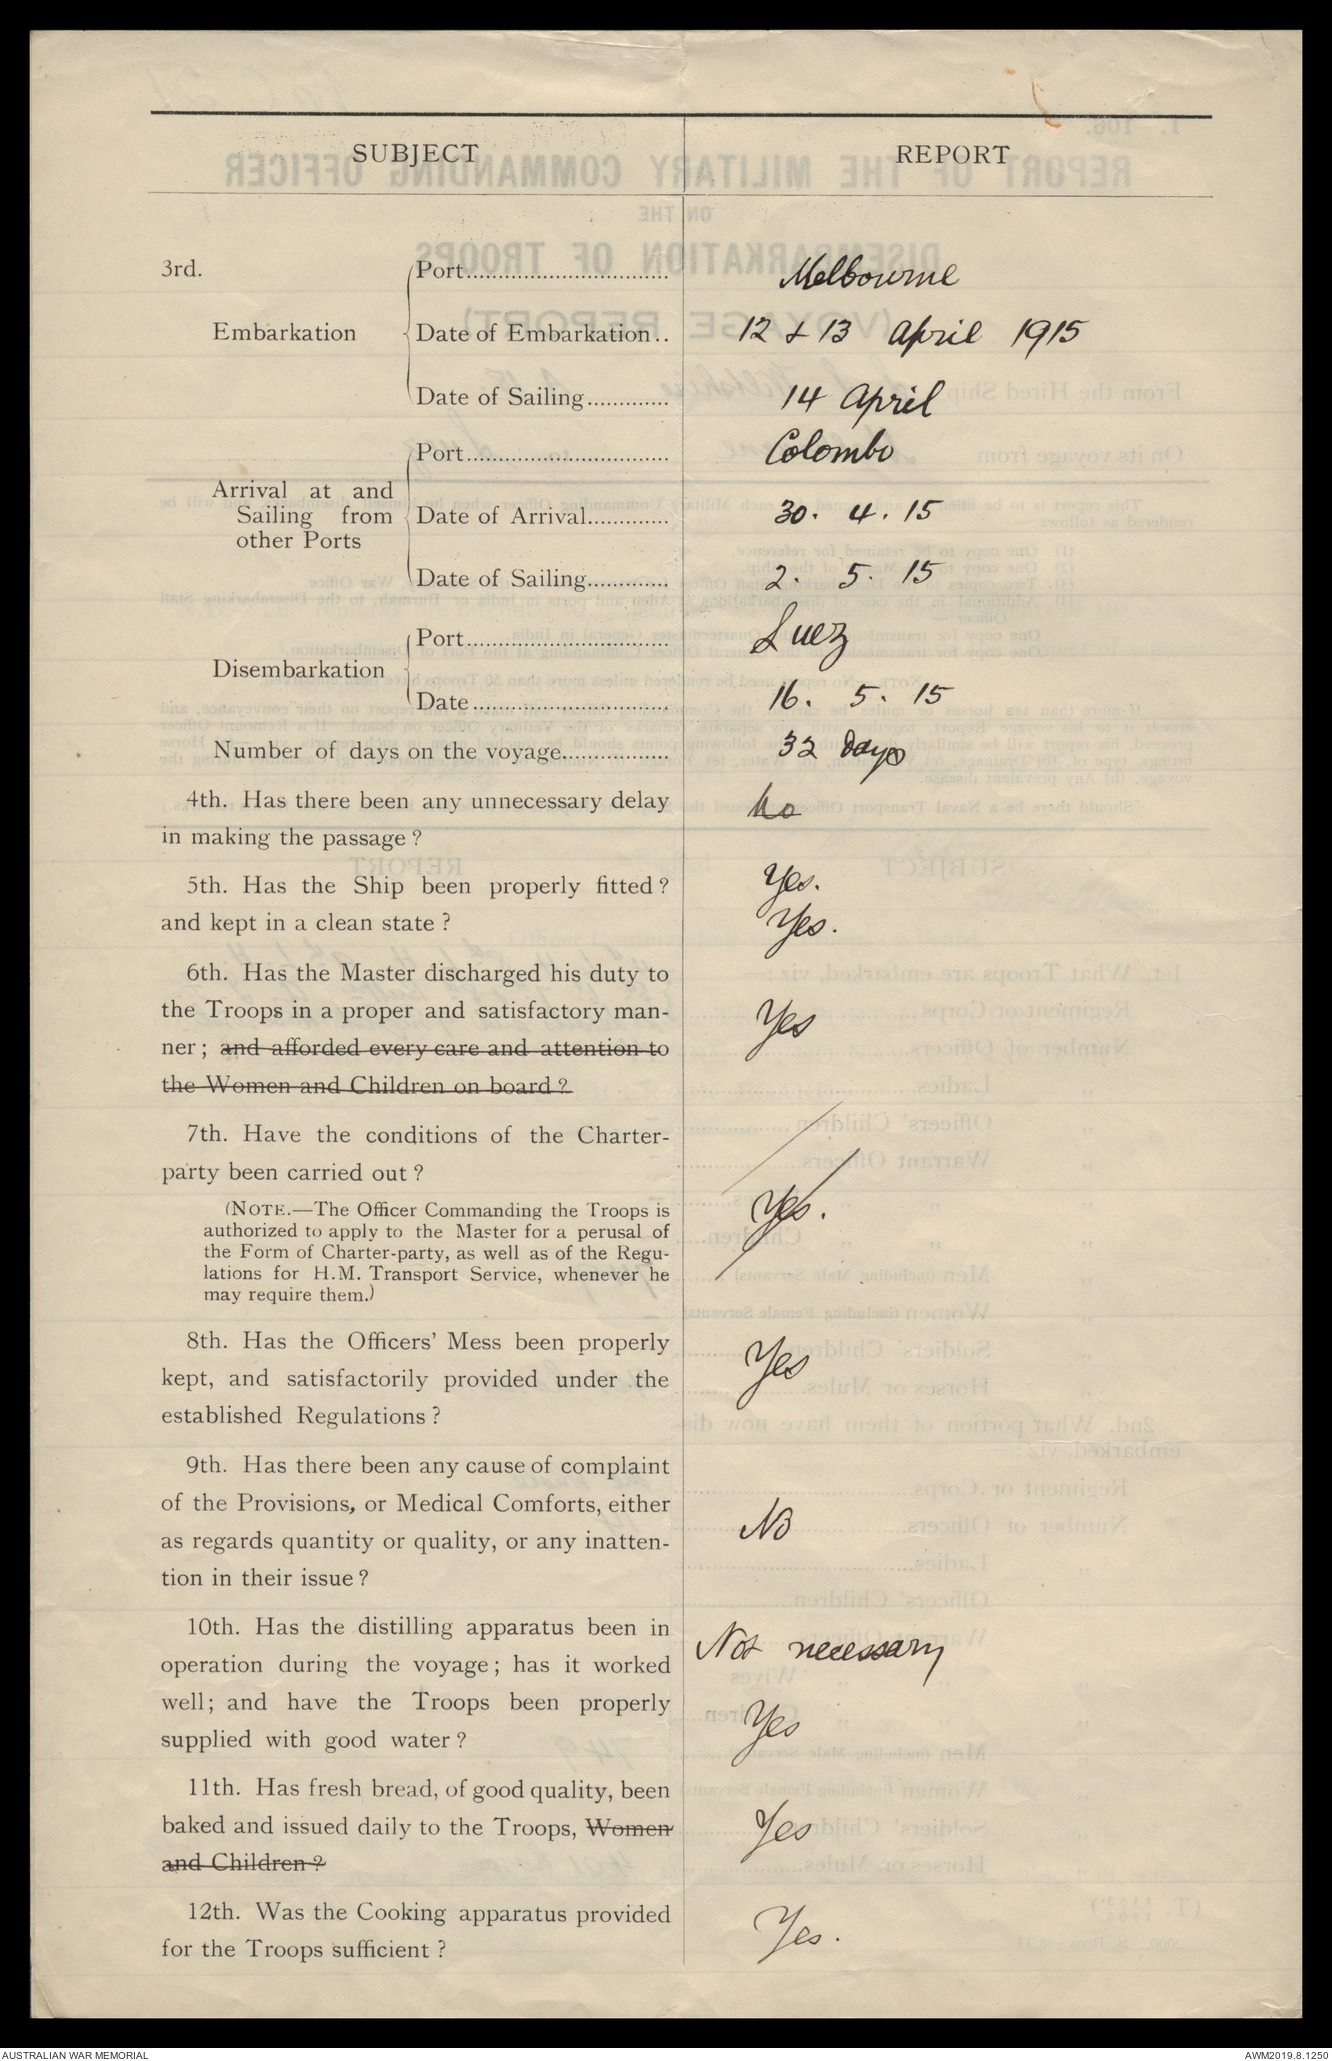 SUBJECT REPORT
3rd.
Embarkation
Port................................ Melbourne
Date of Embarkation.. 12 & 13 April 1915
Date of Sailing............. 14 April
Arrival at and
Sailing from
other Ports
Port................................ Colombo
Date of Arrival............. 30. 4. 15
Date of Sailing............. 2. 5. 15
Disembarkation
Port................................ Suez
Date............................... 16. 5. 15
Number of days on the voyage................. 32 days
4th. Has there been any unnecessary delay No
in making the passage ?
5th. Has the Ship been properly fitted ? Yes.
and kept in a clean state ? Yes.
6th. Has the Master discharged his duty to
the Troops in a proper and satisfactory man- Yes
ner ; and afforded every care and attention to
the Women and Children on board ?
7th. Have the conditions of the Charter-
party been carried out ? Yes.
(NOTE.—The Officer Commanding the Troops is
authorized to apply to the Master for a perusal of
the Form of Charter-party, as well as of the Regu-
lations for H.M. Transport Service, whenever he
may require them.)
8th. Has the Officers' Mess been properly
kept, and satisfactorily provided under the Yes
established Regulations ?
9th. Has there been any cause of complaint
of the Provisions, or Medical Comforts, either
as regards quantity or quality, or any inatten- No
tion in their issue ?
10th. Has the distilling apparatus been in
operation during the voyage ; has it worked Not necessary
well ; and have the Troops been properly
supplied with good water ? Yes
11th. Has fresh bread, of good quality, been
baked and issued daily to the Troops, Women Yes
and Children ?
12th. Was the Cooking apparatus provided
for the Troops sufficient ? Yes.
AUSTRALIAN WAR MEMORIAL AWM2019.8.1250